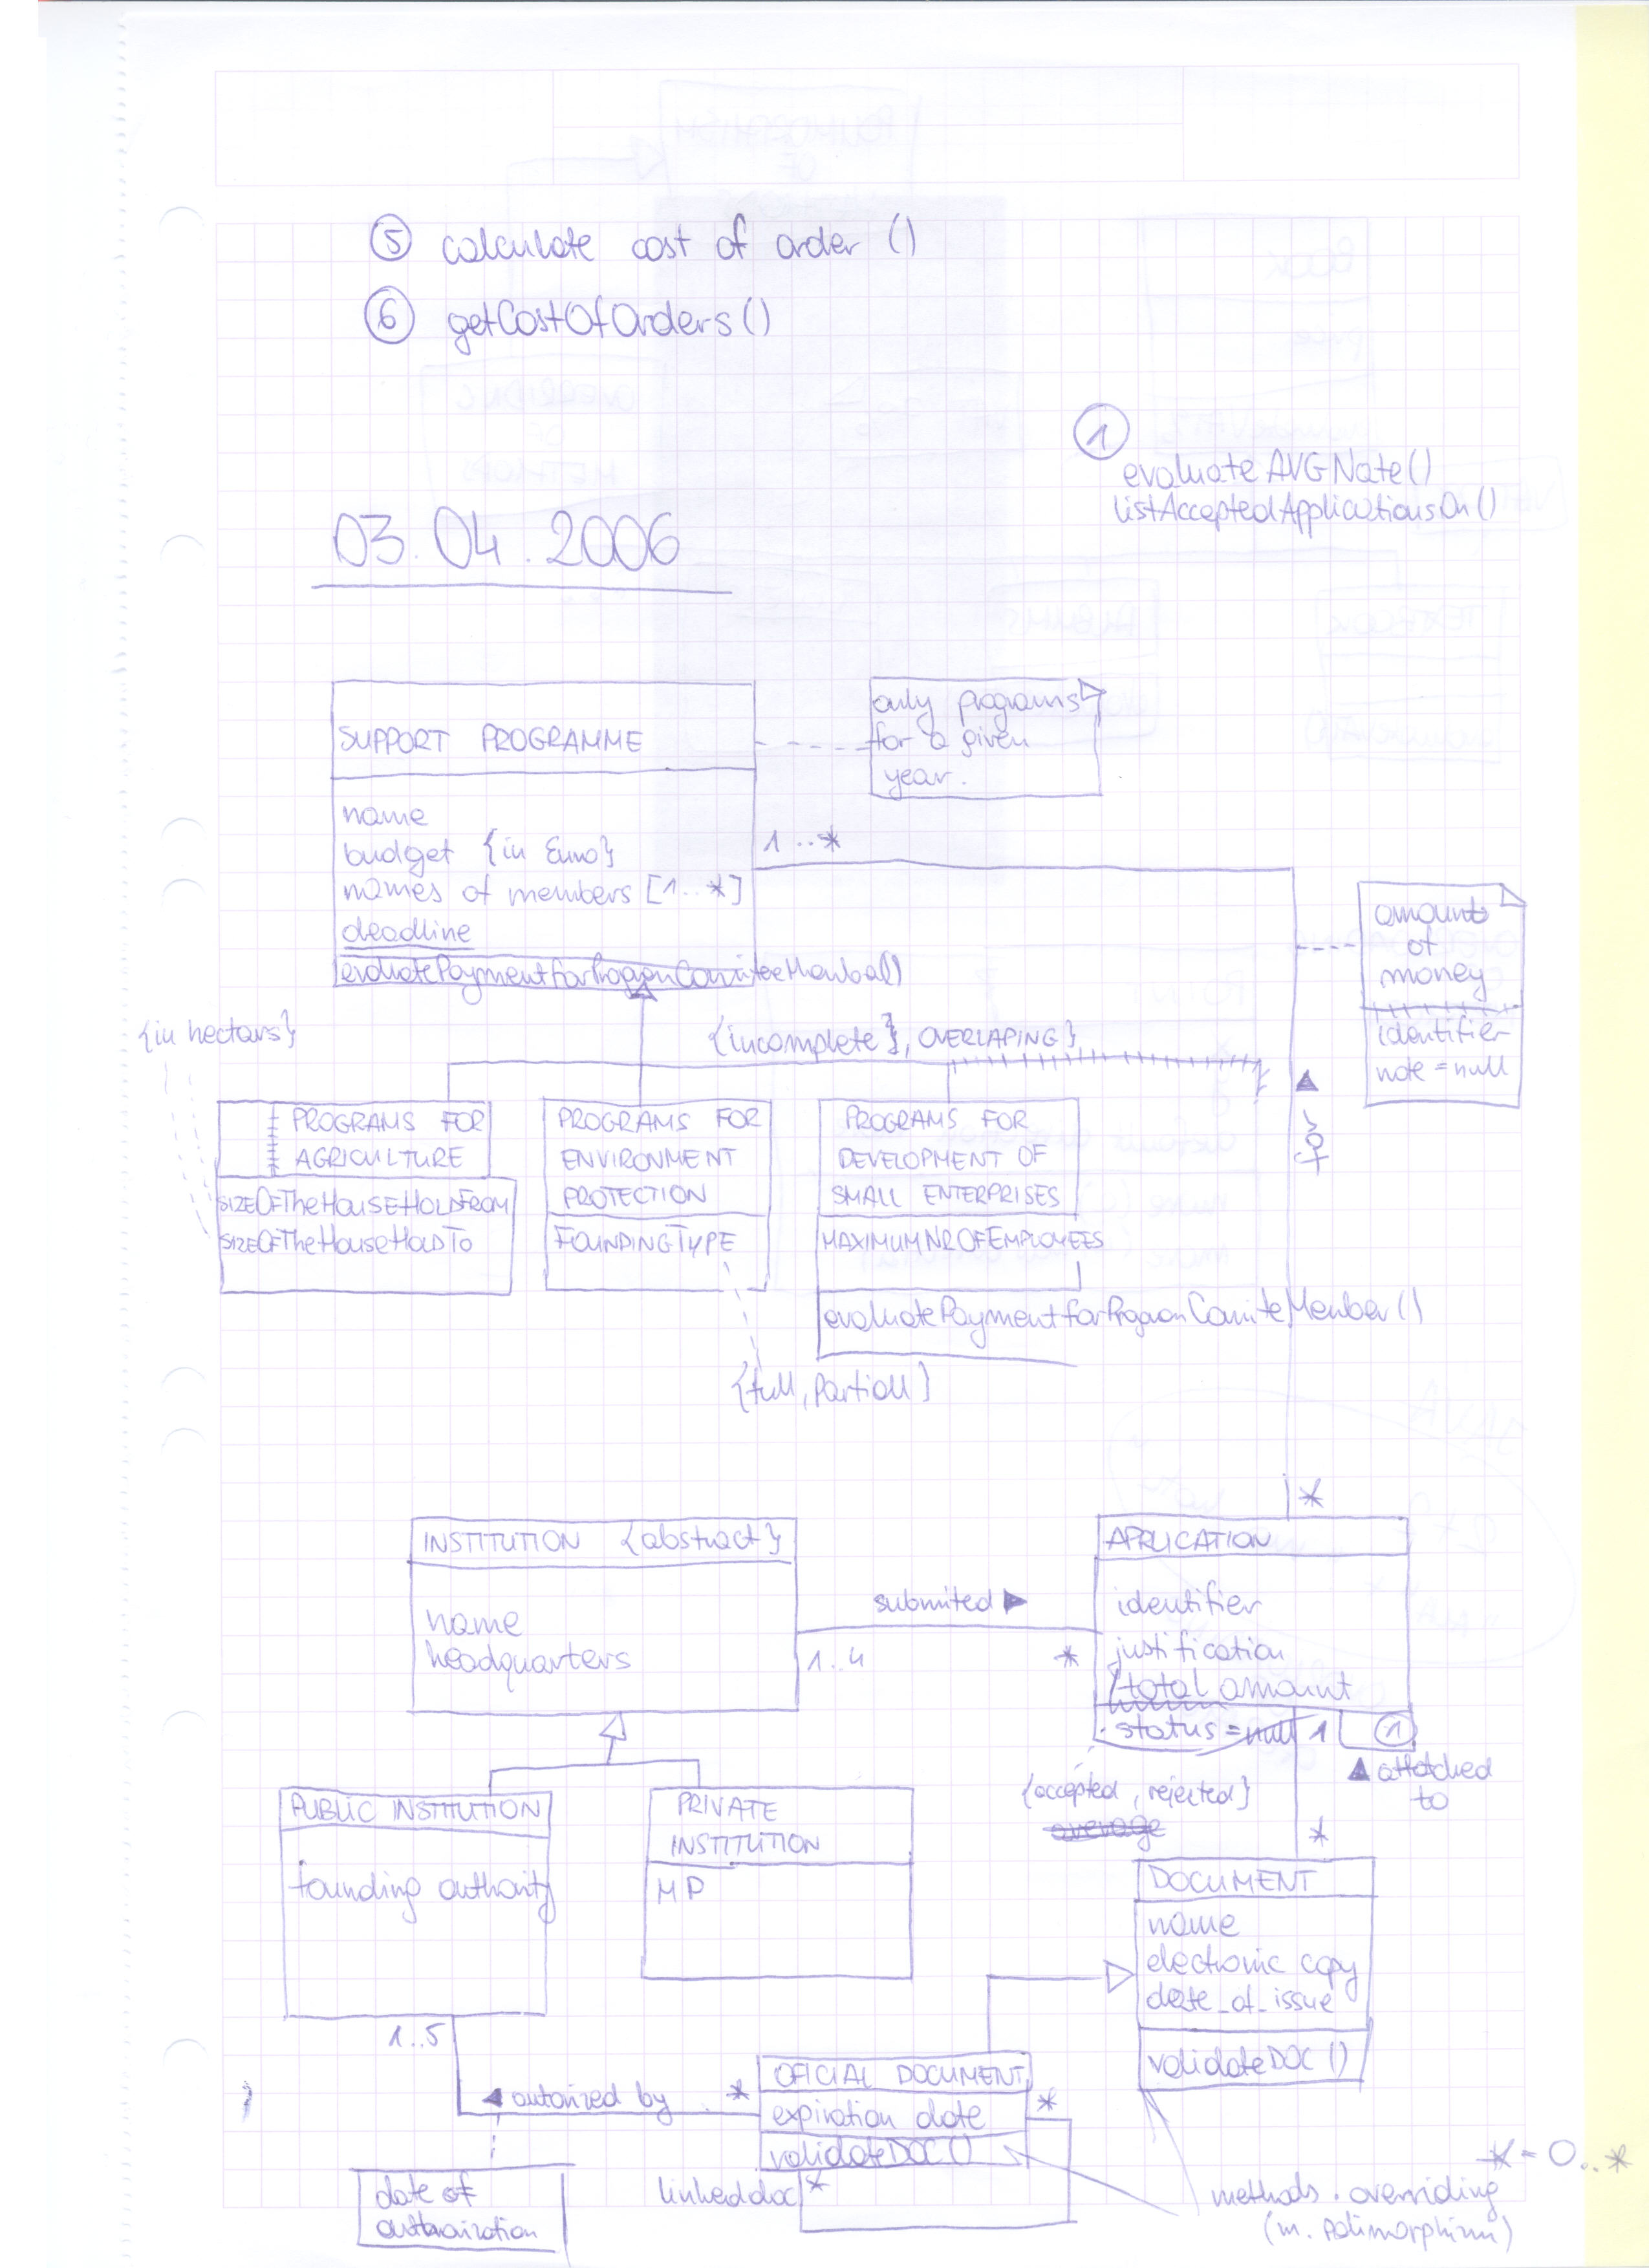 ⑤ calculate cost of order ()
⑥ getCostOfOrders ()
①
evaluate AVGNote()
listAcceptedApplicationsOn()
03.04.2006
SUPPORT PROGRAMME
only programs
for a given
year.
name
budget {in Euro}
names of members [1..*]
deadline
evaluatePaymentforProgramComiteeMember()
1..*
amount
of
money
identifier
note = null
{in hectars}
{incomplete}, OVERLAPING}
PROGRAMS FOR
AGRICULTURE
SIZEOFTheHOUSEHOLDFROM
SIZEOFTheHouseHOLDTO
PROGRAMS FOR
ENVIRONMENT
PROTECTION
FOUNDINGTYPE
PROGRAMS FOR
DEVELOPMENT OF
SMALL ENTERPRISES
MAXIMUMNROFEMPLOYEES
evaluatePaymentforProgramComiteMember()
for
{full, partiall}
*
INSTITUTION {abstract}
name
headquarters
submited ▶
1..4
*
APPLICATION
identifier
justification
/total amount
status = null
1
①
{accepted, rejected}
average
▲ attatched
to
*
PUBLIC INSTITUTION
founding authority
PRIVATE
INSTITUTION
MP
DOCUMENT
name
electronic copy
date_of_issue
validateDOC ()
1..5
◀ autorized by
*
OFICIAL DOCUMENT
expiration date
validateDOC ()
*
linked doc
*
date of
authorization
* = 0..*
methods overriding
(m. polimorphism)